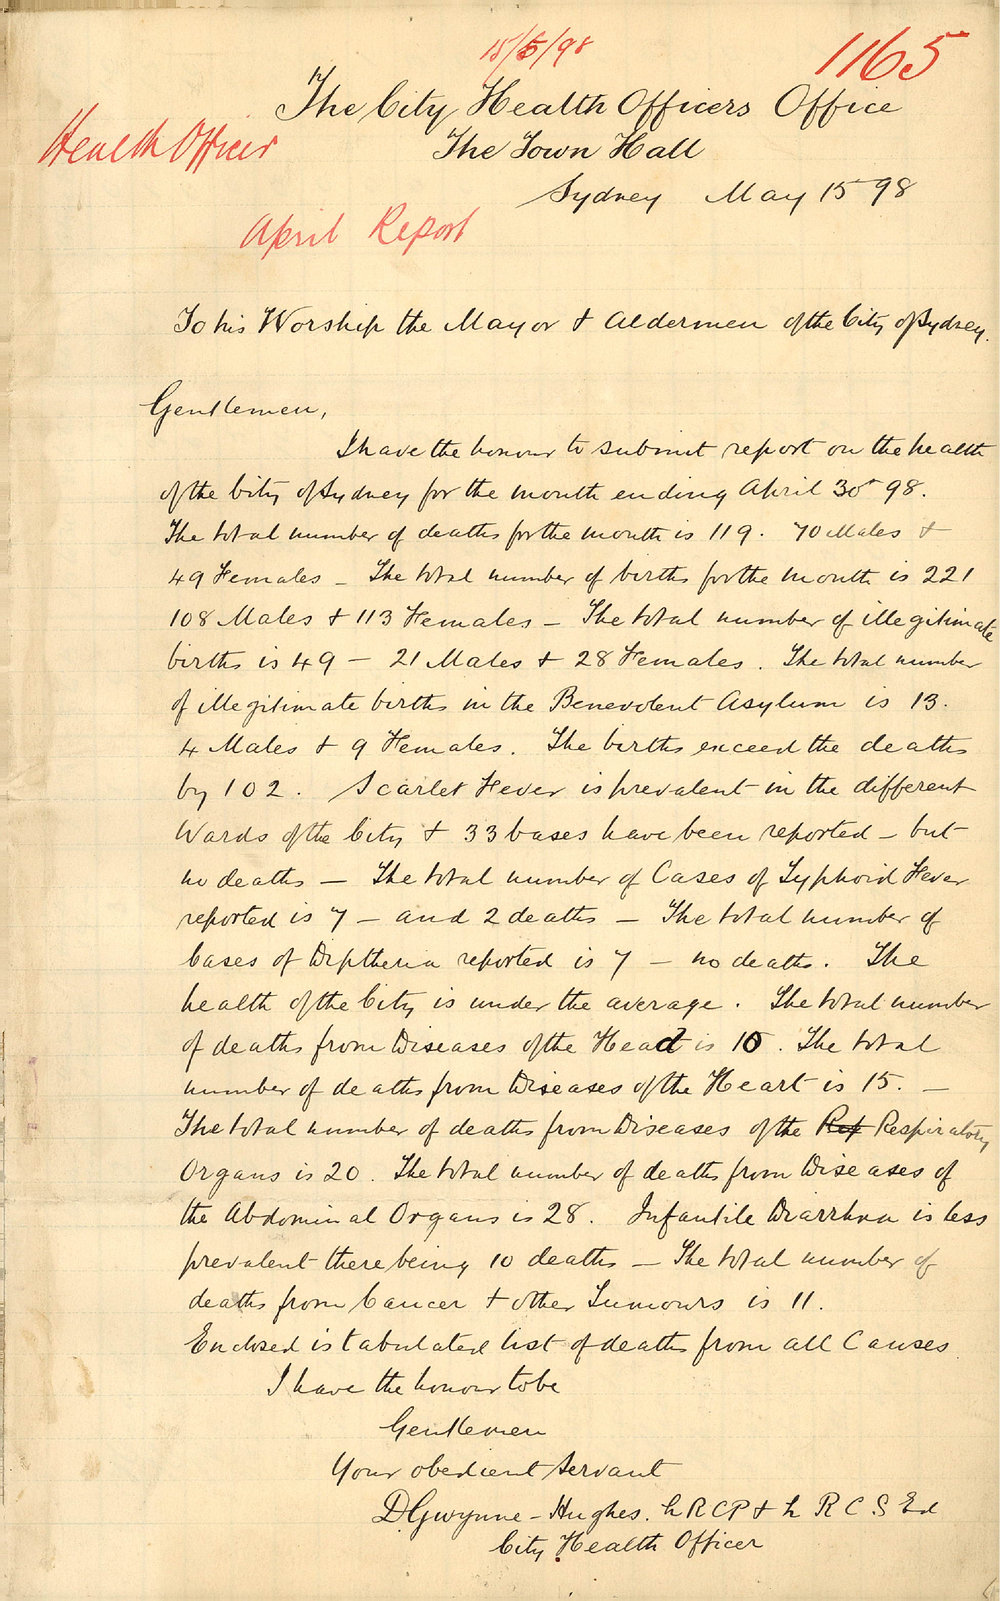 15/5/98
1165
The City Health Officers Office
Health Officer
The Town Hall
Sydney May 15 98
April Report
To his Worship the Mayor & Aldermen of the City of Sydney.
Gentlemen,
I have the honour to submit report on the health
of the City of Sydney for the month ending April 30th 98.
The total number of deaths for the month is 119. 70 Males &
49 Females – The total number of births for the month is 221
108 Males & 113 Females – The total number of illegitimate
births is 49 – 21 Males & 28 Females. The total number
of illegitimate births in the Benevolent Asylum is 13.
4 Males & 9 Females. The births exceed the deaths
by 102. Scarlet Fever is prevalent in the different
Wards of the City & 33 Cases have been reported – but
no deaths – The total number of Cases of Typhoid Fever
reported is 7 – and 2 deaths – The total number of
Cases of Diptheria reported is 7 – no deaths. The
health of the City is under the average. The total number
of deaths from Diseases of the Head is 10. The total
number of deaths from Diseases of the Heart is 15. –
The total number of deaths from Diseases of the Rep Respiratory
Organs is 20. The total number of deaths from Diseases of
the Abdominal Organs is 28. Infantile Diarrhoea is less
prevalent there being 10 deaths – The total number of
deaths from Cancer & other Tumours is 11.
Enclosed is tabulated list of deaths from all Causes
I have the honour to be
Gentlemen
Your obedient Servant
D. Gwynne-Hughes. L R C P & L R C S Ed
City Health Officer